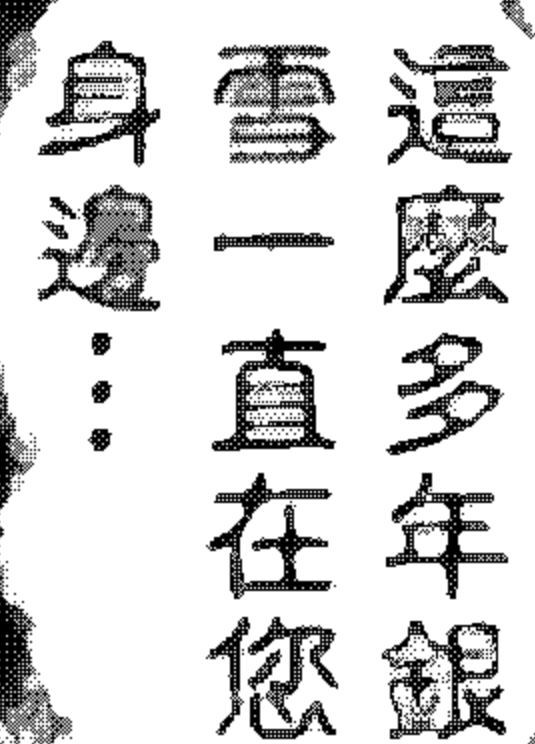 這麼多年銀
雪一直在您
身邊…